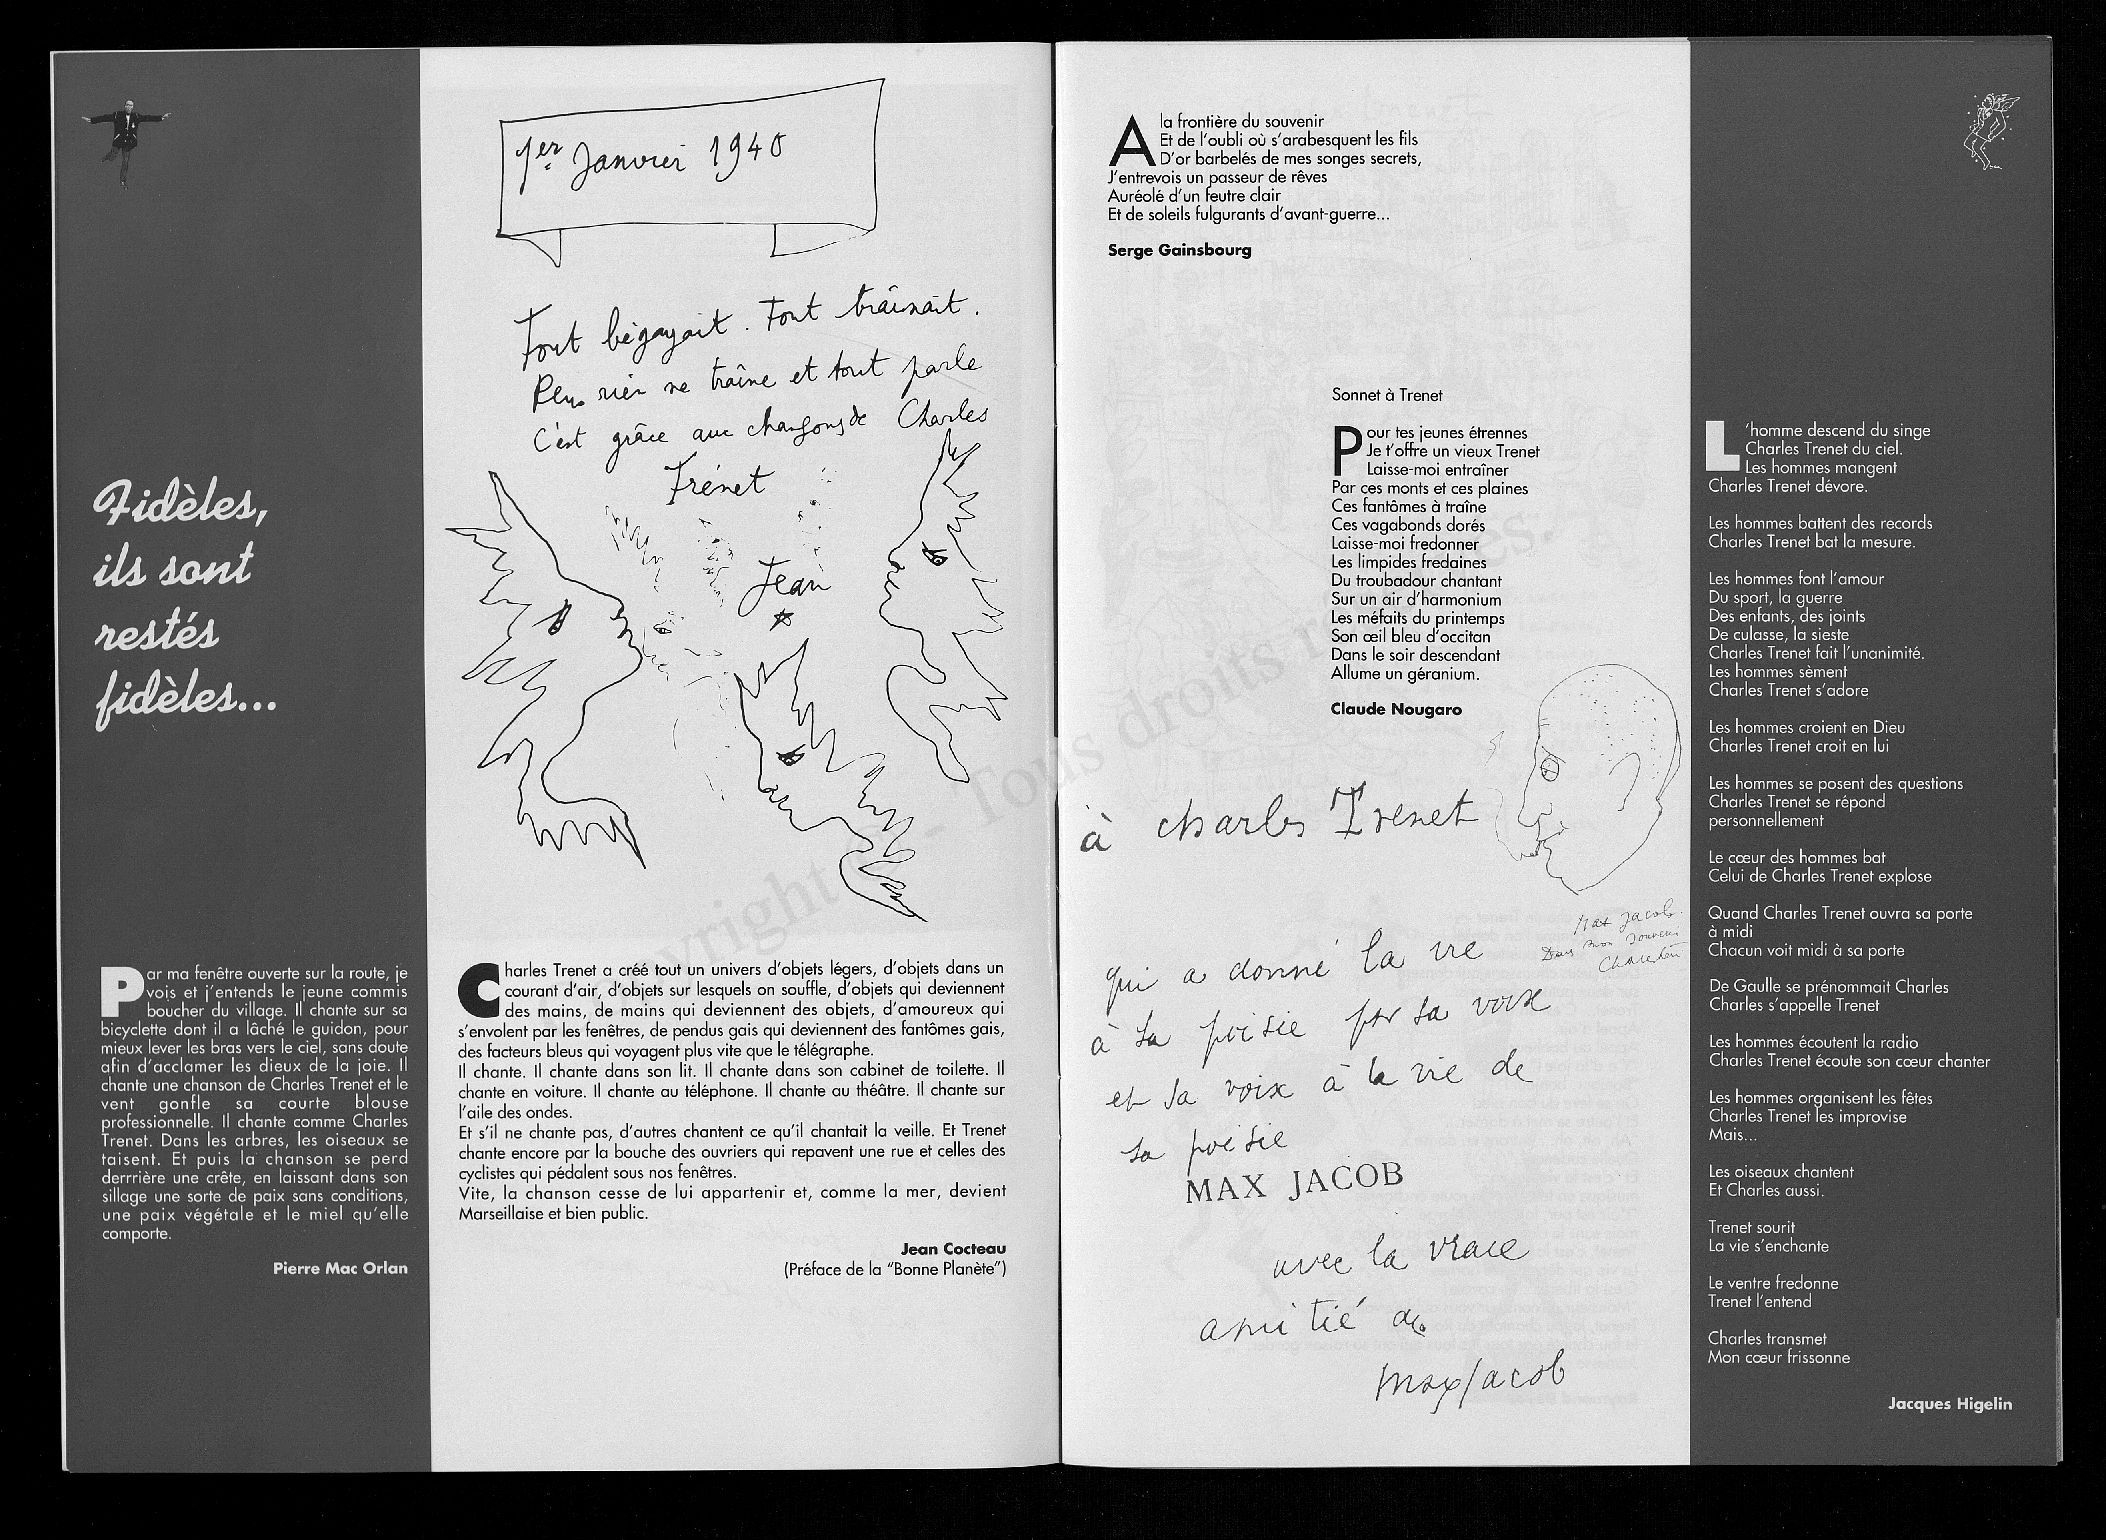 Fidèles,
ils sont
restés
fidèles...
Par ma fenêtre ouverte sur la route, je
vois et j'entends le jeune commis
boucher du village. Il chante sur sa
bicyclette dont il a lâché le guidon, pour
mieux lever les bras vers le ciel, sans doute
afin d'acclamer les dieux de la joie. Il
chante une chanson de Charles Trenet et le
vent gonfle sa courte blouse
professionnelle. Il chante comme Charles
Trenet. Dans les arbres, les oiseaux se
taisent. Et puis la chanson se perd
derrrière une crête, en laissant dans son
sillage une sorte de paix sans conditions,
une paix végétale et le miel qu'elle
comporte.
Pierre Mac Orlan
1er Janvier 1940
Tout bégayait. Tout traînait.
rien ne traîne et tout parle
C'est grâce aux chansons de Charles
Trénet
Jean
Charles Trenet a créé tout un univers d'objets légers, d'objets dans un
courant d'air, d'objets sur lesquels on souffle, d'objets qui deviennent
des mains, de mains qui deviennent des objets, d'amoureux qui
s'envolent par les fenêtres, de pendus gais qui deviennent des fantômes gais,
des facteurs bleus qui voyagent plus vite que le télégraphe.
Il chante. Il chante dans son lit. Il chante dans son cabinet de toilette. Il
chante en voiture. Il chante au téléphone. Il chante au théâtre. Il chante sur
l'aile des ondes.
Et s'il ne chante pas, d'autres chantent ce qu'il chantait la veille. Et Trenet
chante encore par la bouche des ouvriers qui repavent une rue et celles des
cyclistes qui pédalent sous nos fenêtres.
Vite, la chanson cesse de lui appartenir et, comme la mer, devient
Marseillaise et bien public.
Jean Cocteau
(Préface de la "Bonne Planète")
A la frontière du souvenir
Et de l'oubli où s'arabesquent les fils
D'or barbelés de mes songes secrets,
J'entrevois un passeur de rêves
Auréolé d'un feutre clair
Et de soleils fulgurants d'avant-guerre...
Serge Gainsbourg
Sonnet à Trenet
Pour tes jeunes étrennes
Je t'offre un vieux Trenet
Laisse-moi entraîner
Par ces monts et ces plaines
Ces fantômes à traîne
Ces vagabonds dorés
Laisse-moi fredonner
Les limpides fredaines
Du troubadour chantant
Sur un air d'harmonium
Les méfaits du printemps
Son œil bleu d'occitan
Dans le soir descendant
Allume un géranium.
Claude Nougaro
à charles Trenet
Max Jacob
Dans mon souvenir
qui a donné la vie
à sa poésie par sa voix
et sa voix à la vie de
sa poésie
MAX JACOB
avec la vraie
amitié de
Max Jacob
L'homme descend du singe
Charles Trenet du ciel.
Les hommes mangent
Charles Trenet dévore.
Les hommes battent des records
Charles Trenet bat la mesure.
Les hommes font l'amour
Du sport, la guerre
Des enfants, des joints
De culasse, la sieste
Charles Trenet fait l'unanimité.
Les hommes sèment
Charles Trenet s'adore
Les hommes croient en Dieu
Charles Trenet croit en lui
Les hommes se posent des questions
Charles Trenet se répond
personnellement
Le cœur des hommes bat
Celui de Charles Trenet explose
Quand Charles Trenet ouvra sa porte
à midi
Chacun voit midi à sa porte
De Gaulle se prénommait Charles
Charles s'appelle Trenet
Les hommes écoutent la radio
Charles Trenet écoute son cœur chanter
Les hommes organisent les fêtes
Charles Trenet les improvise
Mais...
Les oiseaux chantent
Et Charles aussi.
Trenet sourit
La vie s'enchante
Le ventre fredonne
Trenet l'entend
Charles transmet
Mon cœur frissonne
Jacques Higelin